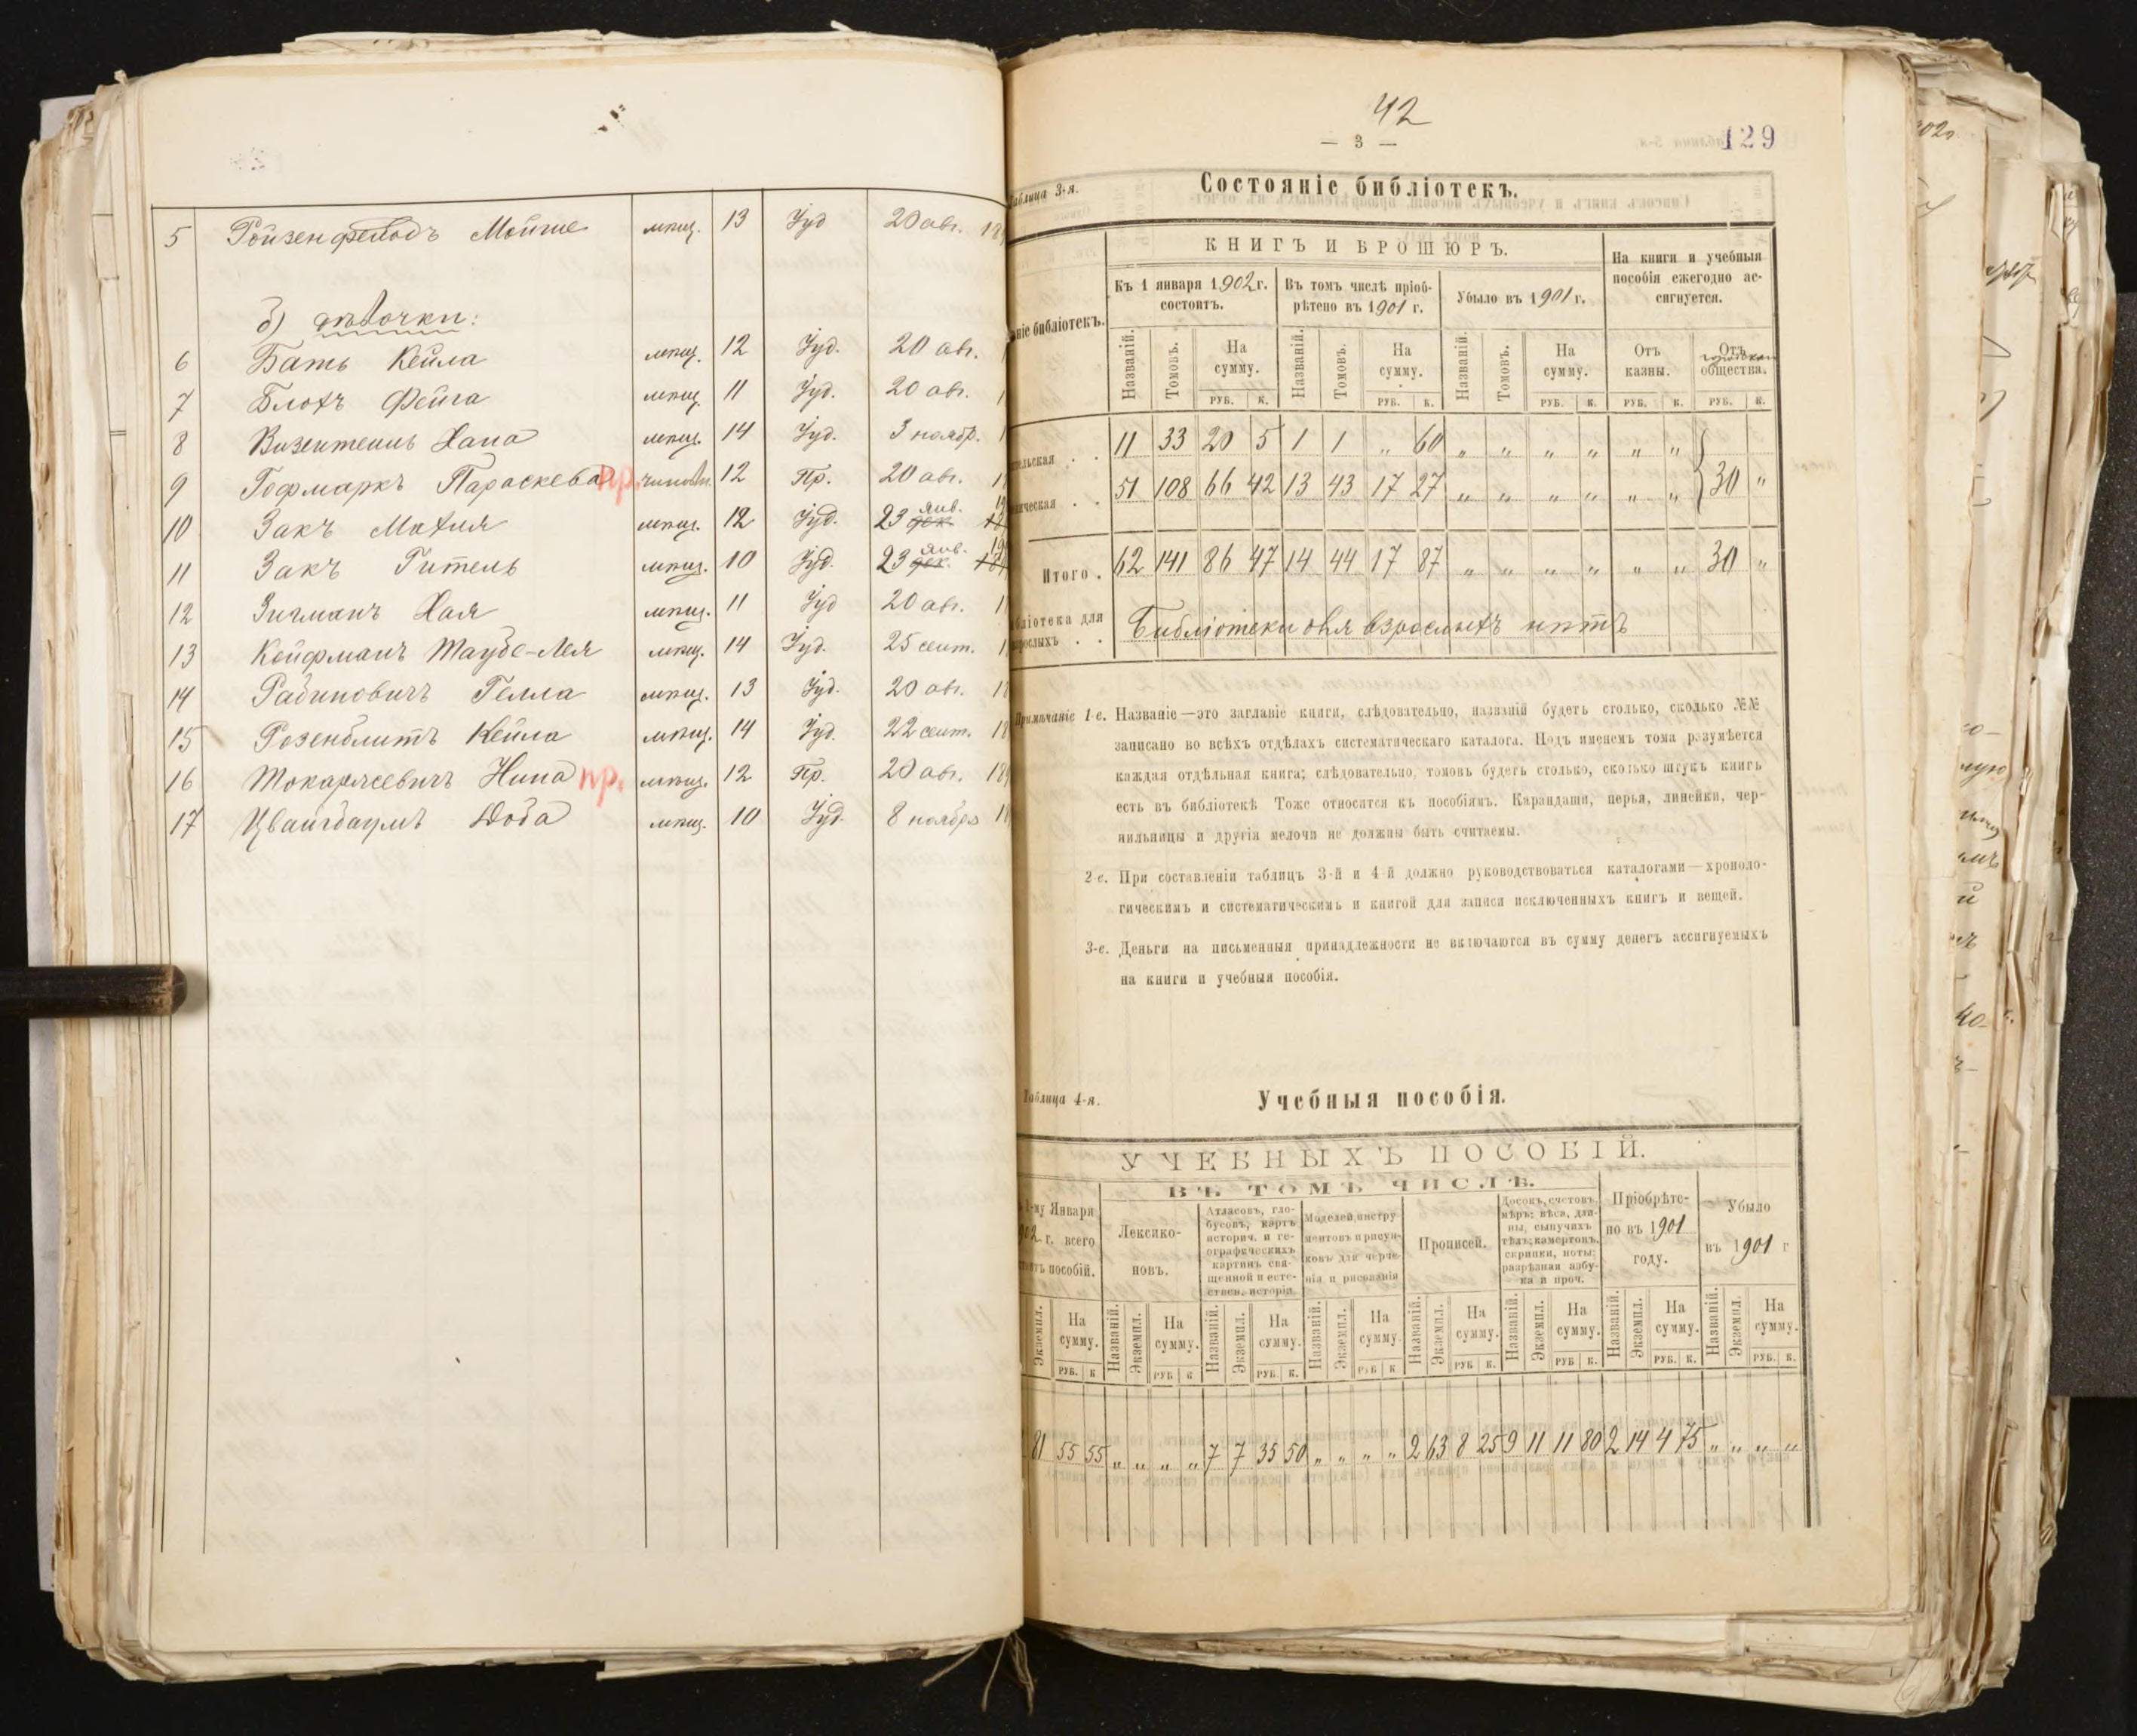 5 Ройзенфельдъ Мойше мѣщ. 13 Іуд 20 авг. 18
б) дѣвочки:
6 Бать Кейла мѣщ. 12 Іуд. 20 авг.
7 Блохъ Фейга мѣщ 11 Іуд. 20 авг.
8 Хана мѣщ. 14 Іуд. 3 ноябр.
9 Гофмаркъ Параскева пр. чиновн. 12 Пр. 20 авг.
10 Закъ мѣщ. 12 Іуд. 23 янв.
11 Закъ Гитель мѣщ. 10 Іуд. 23 янв.
12 Зигманъ Хая мѣщ. 11 Іуд 20 авг.
13 Койфманъ Таубе-Лея мѣщ. 14 Іуд. 25 сент.
14 Рабиновичъ Гелла мѣщ. 13 Іуд. 20 авг. 18
15 Розенблитъ Кейла мѣщ. 14 Іуд. 22 сент. 18
16 Токаржевичъ Нина пр. мѣщ. 12 Пр. 20 авг. 189
17 Цвайгбаумъ Доба мѣщ. 10 Іуд. 8 ноября 18
42
— 3 —
129
Таблица 3-я.
Состояніе библіотекъ.
КНИГЪ И БРОШЮРЪ.
На книги и учебныя пособія ежегодно ассигнуется.
ніе библіотекъ.
Къ 1 января 1902 г. состоитъ.
Въ томъ числѣ пріобрѣтено въ 1901 г.
Убыло въ 1901 г.
Названій. Томовъ. На сумму. Названій. Томовъ. На сумму. Названій. Томовъ. На сумму. Отъ казны. Отъ городскаго общества.
РУБ. К. РУБ. К. РУБ. К. РУБ. К. РУБ. К.
тельская . . 11 33 20 5 1 1 „ 60 „ „ „ „ „ „
ническая . . 51 108 66 42 13 43 17 27 „ „ „ „ „ „ 30 „
Итого . 62 141 86 47 14 44 17 87 „ „ „ „ „ „ 30 „
бліотека для
рослыхъ . . Библіотеки для взрослыхъ нѣтъ
Примѣчаніе 1-е. Названіе—это заглавіе книги, слѣдовательно, названій будетъ столько, сколько №№
записано во всѣхъ отдѣлахъ систематическаго каталога. Подъ именемъ тома разумѣется
каждая отдѣльная книга; слѣдовательно, томовъ будетъ столько, сколько штукъ книгъ
есть въ библіотекѣ Тоже относится къ пособіямъ. Карандаши, перья, линейки, чер-
нильницы и другія мелочи не должны быть считаемы.
2-е. При составленіи таблицъ 3-й и 4-й должно руководствоваться каталогами—хроноло-
гическимъ и систематическимъ и книгой для записи исключенныхъ книгъ и вещей.
3-е. Деньги на письменныя принадлежности не включаются въ сумму денегъ ассигнуемыхъ
на книги и учебныя пособія.
Таблица 4-я.
Учебныя пособія.
УЧЕБНЫХЪ ПОСОБІЙ.
ВЪ ТОМЪ ЧИСЛѢ.
1-му Января 902 г. всего пособій.
Лексико-
новъ.
Атласовъ, гло-
бусовъ, картъ
историч. и ге-
ографическихъ
картинъ свя-
щенной и есте-
ствен. исторіи
Моделей, инстру-
ментовъ и рисун-
ковъ для черче-
нія и рисованія
Прописей.
Досокъ, счетовъ,
мѣръ: вѣса, дли-
ны, сыпучихъ
тѣлъ; камертонъ,
скрипки, ноты;
разрѣзная азбу-
ка и проч.
Пріобрѣте-
но въ 1901
году.
Убыло
въ 1901 г
Экземпл. На сумму. Названій. Экземпл. На сумму. Названій. Экземпл. На сумму. Названій. Экземпл. На сумму. Названій. Экземпл. На сумму. Названій. Экземпл. На сумму. Названій. Экземпл. На сумму. Названій. Экземпл. На сумму.
РУБ. К РУБ К РУБ. К. РУБ К РУБ К. РУБ К. РУБ. К. РУБ. К.
81 55 55 „ „ „ „ 7 7 35 50 „ „ „ „ 2 63 8 25 9 11 11 80 2 14 4 75 „ „ „ „